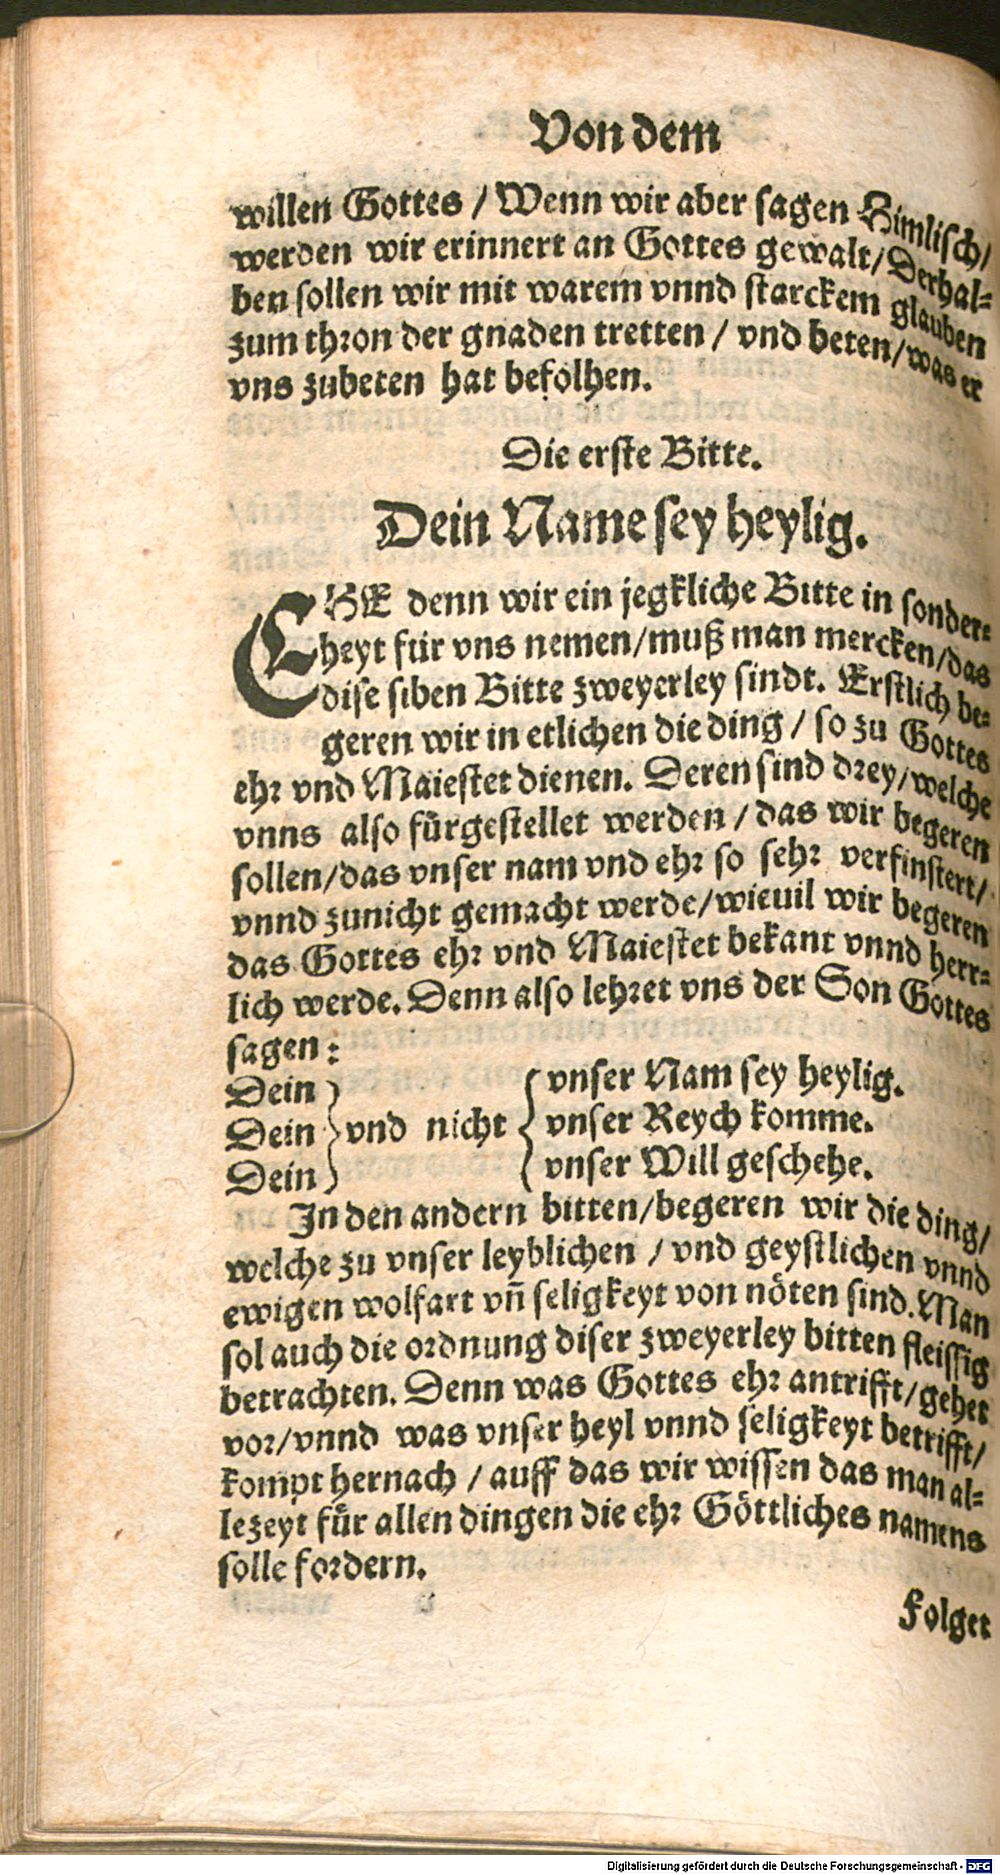 Von dem
willen Gottes / Wenn wir aber sagen Himlisch/
werden wir erinnert an Gottes gewalt/ Derhal-
ben sollen wir mit warem vnnd starckem glauben
zum thron der gnaden tretten / vnd beten/ was er
vns zubeten hat befolhen.
Die erste Bitte.
Dein Name sey heylig.
EHE denn wir ein jegkliche Bitte in sonder-
heyt für vns nemen/muß man mercken/das
dise siben Bitte zweyerley sindt. Erstlich be-
geren wir in etlichen die ding / so zu Gottes
ehr vnd Maiestet dienen. Deren sind drey/welche
vnns also fürgestellet werden / das wir begeren
sollen/das vnser nam vnd ehr so sehr verfinstert/
vnnd zunicht gemacht werde/wieuil wir begeren
das Gottes ehr vnd Maiestet bekant vnnd herr-
lich werde. Denn also lehret vns der Son Gottes
sagen:
Dein } { vnser Nam sey heylig.
Dein } vnd nicht { vnser Reych komme.
Dein } { vnser Will geschehe.
In den andern bitten/begeren wir die ding/
welche zu vnser leyblichen / vnd geystlichen vnnd
ewigen wolfart vñ seligkeyt von nöten sind. Man
sol auch die ordnung diser zweyerley bitten fleissig
betrachten. Denn was Gottes ehr antrifft/gehet
vor/vnnd was vnser heyl vnnd seligkeyt betrifft/
kompt hernach / auff das wir wissen das man al-
lezeyt für allen dingen die ehr Göttliches namens
solle fordern.
Folget
Digitalisierung gefördert durch die Deutsche Forschungsgemeinschaft - DFG